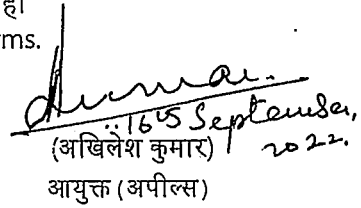 है।
rms.
16th September,
2022.
(अखिलेश कुमार)
आयुक्त (अपील्स)